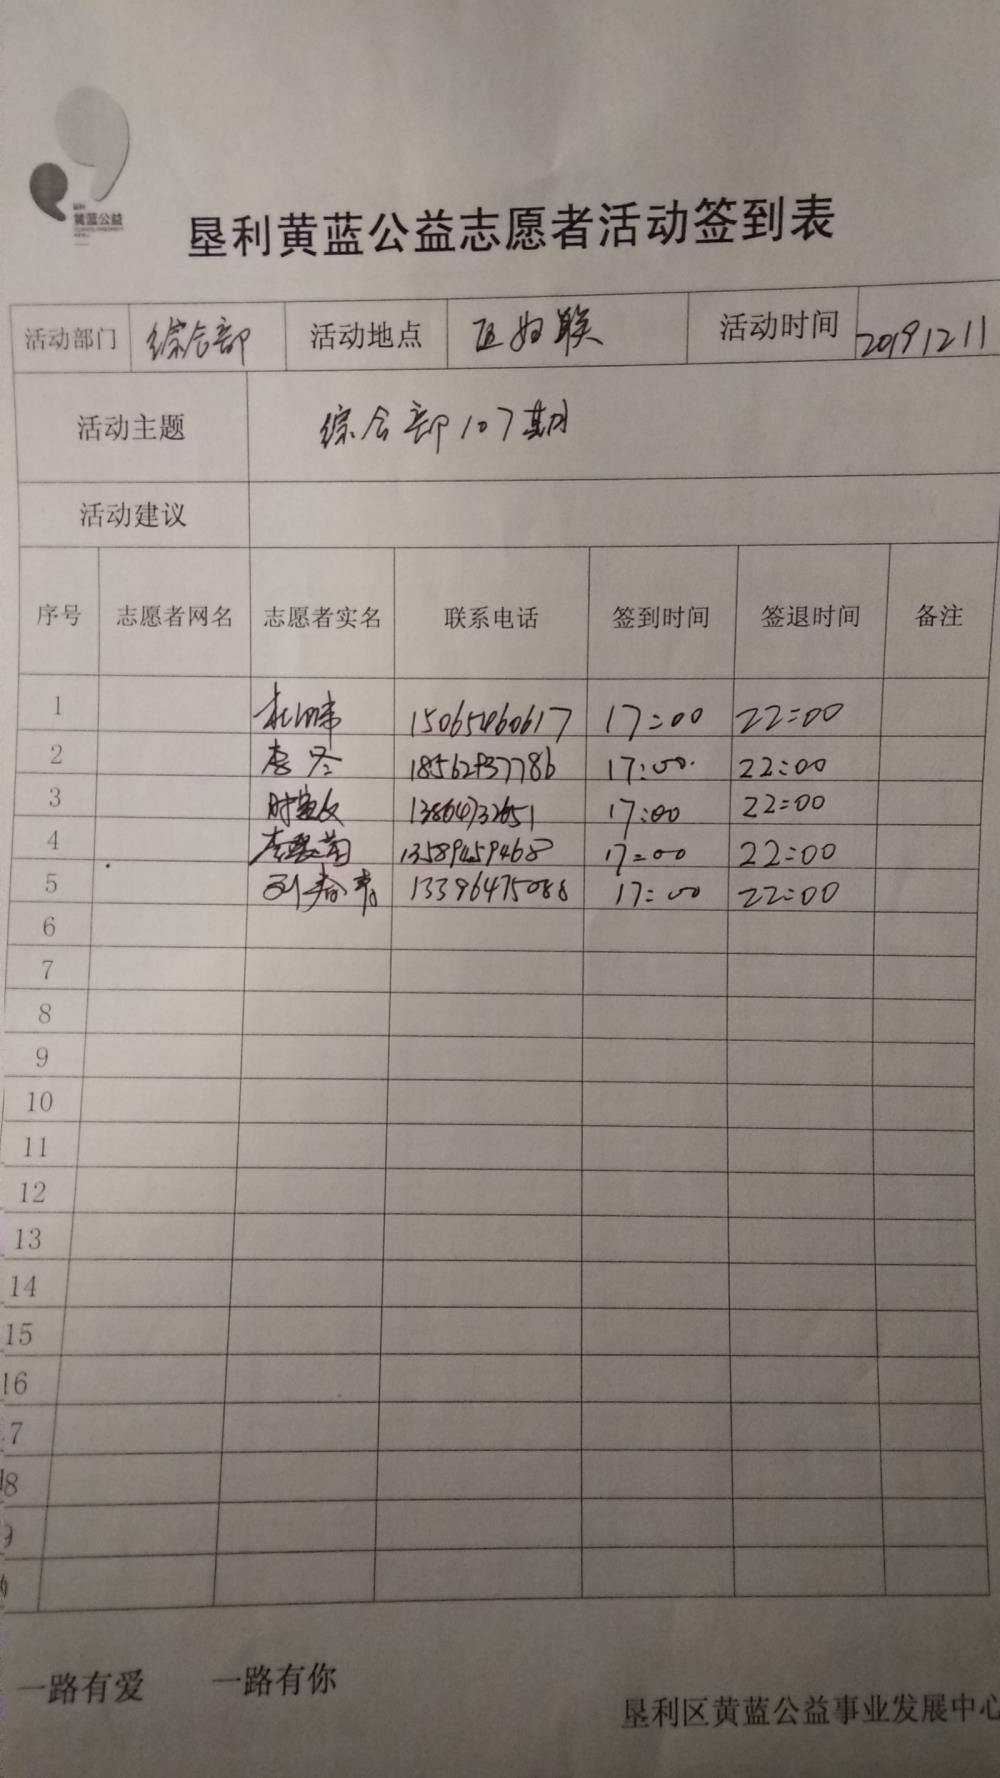 黄蓝公益
垦利黄蓝公益志愿者活动签到表
活动部门 综合部 活动地点 区妇联 活动时间 20191211
活动主题 综合部107期
活动建议
序号 志愿者网名 志愿者实名 联系电话 签到时间 签退时间 备注
1 15065460617 17:00 22:00
2 李冬 18562937786 17:00 22:00
3 13864732651 17:00 22:00
4 13589459468 17:00 22:00
5 13396475088 17:00 22:00
6
7
8
9
10
11
12
13
14
15
16
17
18
9
一路有爱 一路有你
垦利区黄蓝公益事业发展中心